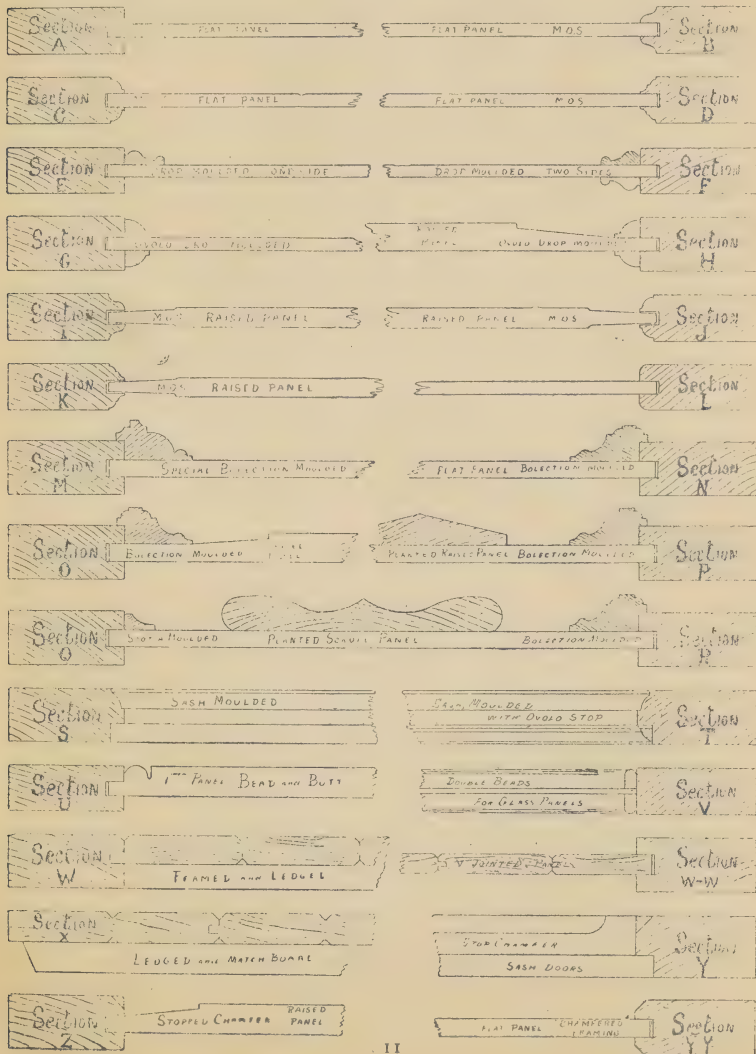 Section A
FLAT PANEL
FLAT PANEL M.O.S
Section B
Section C
FLAT PANEL
FLAT PANEL M.O.S
Section D
Section E
DROP MOULDED ONE SIDE
DROP MOULDED TWO SIDES
Section F
Section G
OVOLO DROP MOULDED
RAISED PANEL OVOLO DROP MOULDED
Section H
Section I
M.O.S RAISED PANEL
RAISED PANEL M.O.S
Section J
Section K
M.O.S RAISED PANEL
Section L
Section M
SPECIAL BOLECTION MOULDED
FLAT PANEL BOLECTION MOULDED
Section N
Section O
BOLECTION MOULDED
PLANTED RAISED PANEL BOLECTION MOULDED
Section P
Section Q
MOULDED PLANTED SCROLL PANEL BOLECTION MOULDED
Section R
Section S
SASH MOULDED
MOULDED
WITH OVOLO STOP
Section T
Section U
PANEL BEAD AND BUTT
DOUBLE BEADS
FOR GLASS PANELS
Section V
Section W
FRAMED AND LEDGED
V JOINTED PANEL
Section W-W
Section X
LEDGED AND MATCH
STOP CHAMFER
SASH DOORS
Section Y
Section Z
STOPPED CHAMFER RAISED PANEL
FLAT PANEL CHAMFERED FRAMING
Section YY
11